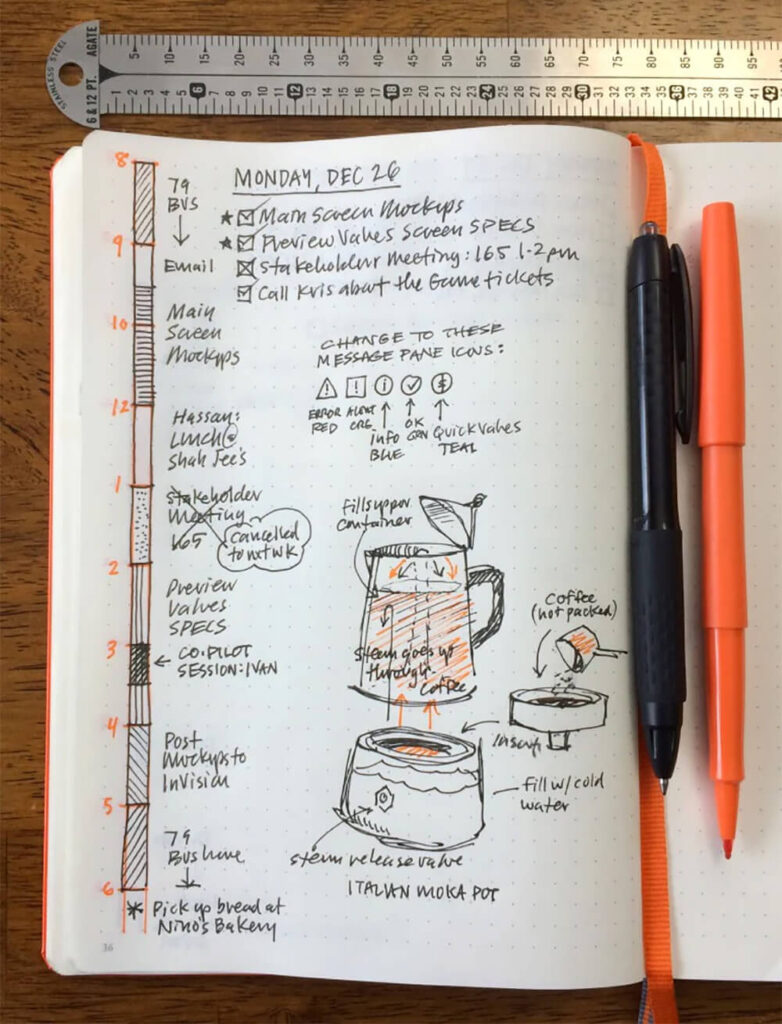 STAINLESS STEEL
AGATE
6 & 12 PT.
5 10 15 20 25 30 35 40 45 50 55 60 65 70 75 80 85 90 95
1 2 3 4 5 6 7 8 9 10 11 12 13 14 15 16 17 18 19 20 21 22 23 24 25 26 27 28 29 30 31 32 33 34 35 36 37 38 39 40 41 42
MONDAY, DEC 26
★ Main Screen Mockups
★ Preview Values Screen SPECS
Stakeholder Meeting: 165 1-2 pm
Call Kris about the Game tickets
8
79
BUS
9
Email
Main
Screen
Mockups
10
12
Hassan:
Lunch @
Shah Jee's
1
Stakeholder
Meeting
165
Cancelled
to nxt wk
2
Preview
Values
SPECS
3
CO-PILOT
SESSION: IVAN
4
Post
Mockups to
InVision
5
79
Bus home
6
* Pick up bread at
Nino's Bakery
36
CHANGE TO THESE
MESSAGE PANE ICONS:
! ! i ✓ $
ERROR
RED
ALERT
ORG
info
BLUE
OK
GRN
Quick Values
TEAL
fills upper
container
Steam goes up
through
Coffee
Coffee
(not packed)
insert
fill w/ cold
water
steam release valve
ITALIAN MOKA POT